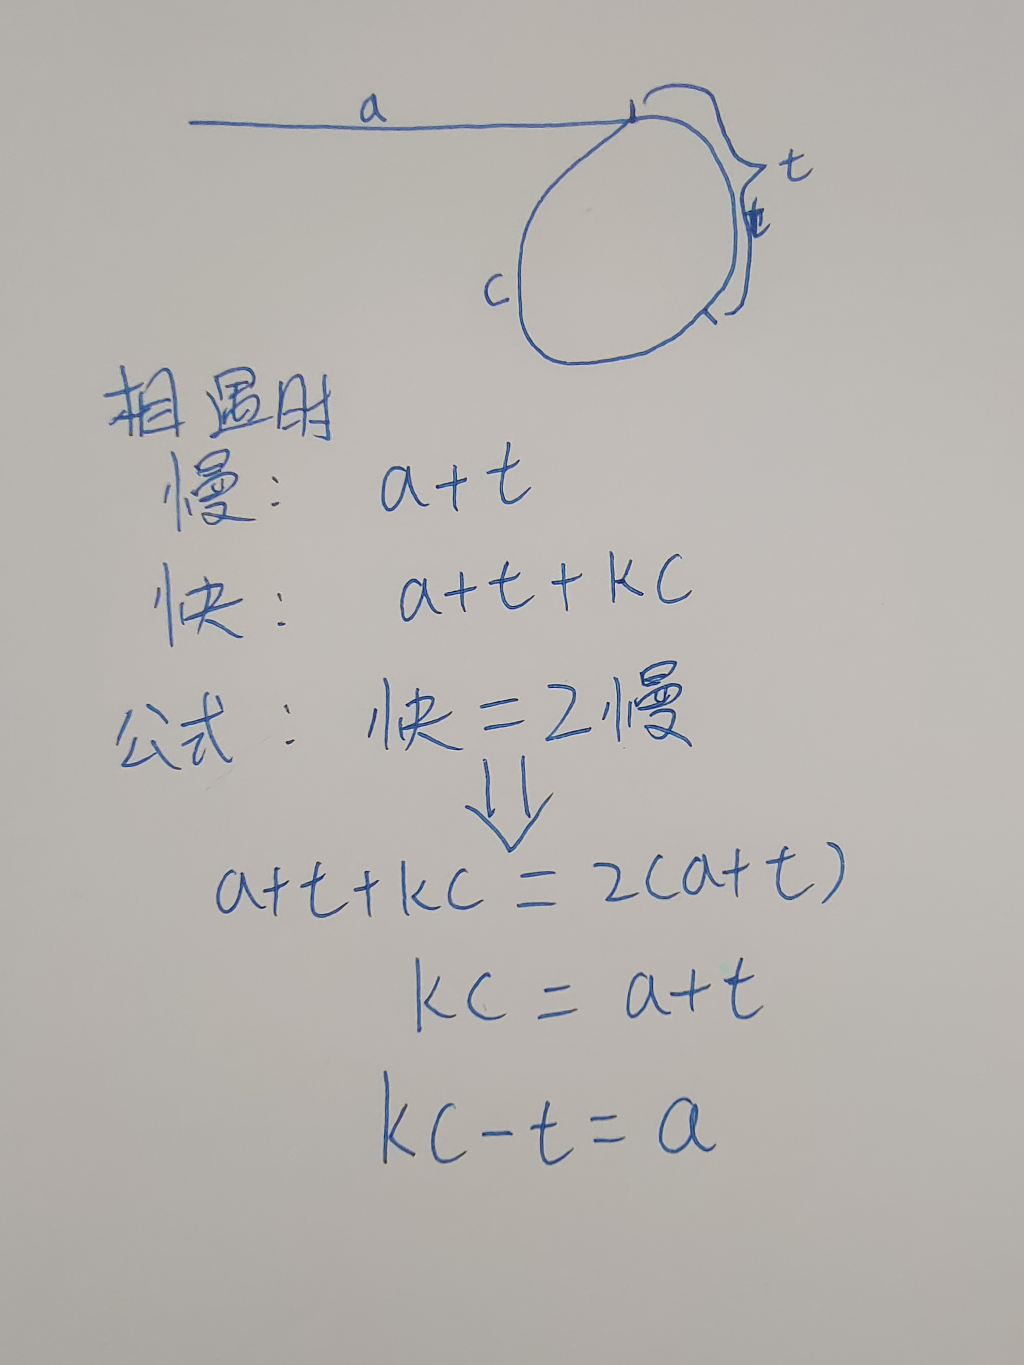 a
t
c
相遇时
慢: a+t
快: a+t+kc
公式: 快=2慢
a+t+kc=2(a+t)
kc=a+t
kc-t=a